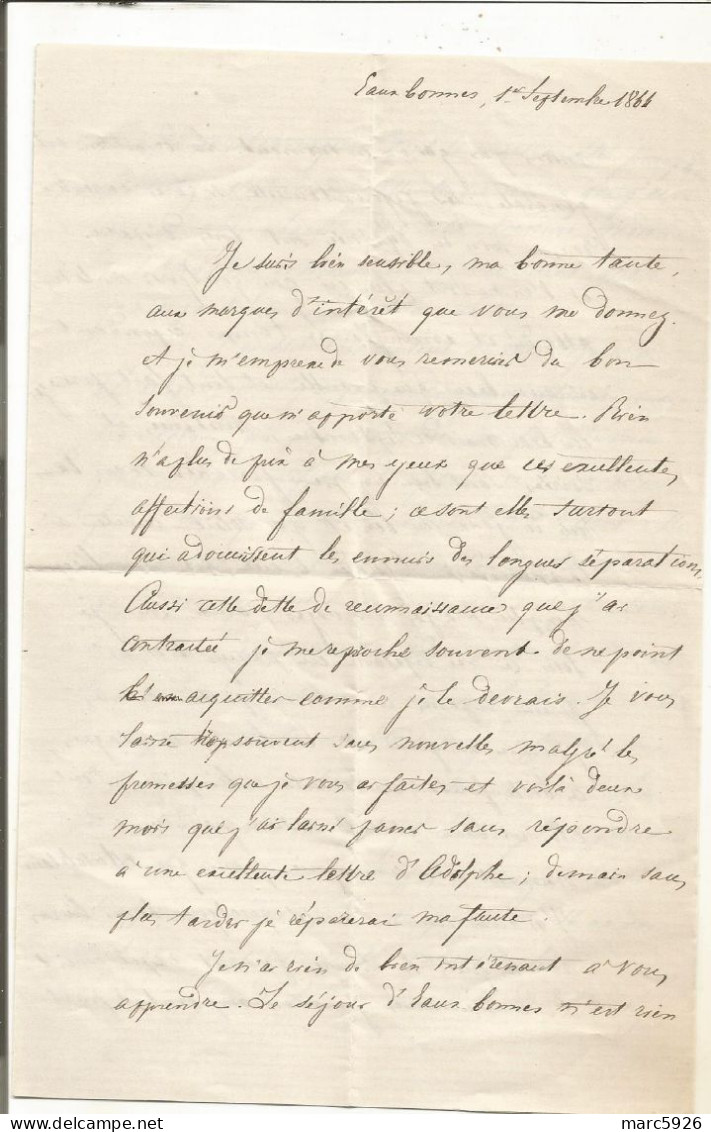 Eaux bonnes, 1er Septembre 1866
Je suis bien sensible, ma bonne tante,
aux marques d'intérêt que vous me donnez.
et je m'empresse de vous remercier du bon
souvenir que m'apporte votre lettre. Rien
n'a plus de prix à mes yeux que ces excellentes
affections de famille ; ce sont elles surtout
qui adoucissent les ennuis des longues séparations.
Aussi cette dette de reconnaissance que j'ai
contractée je me reproche souvent de ne point
acquitter comme je le devrais. Je vous
laisse trop souvent sans nouvelles malgré les
promesses que je vous ai faites, et voilà deux
mois que j'ai laissé passer sans répondre
à une excellente lettre d'Adolphe ; demain sans
plus tarder je réparerai ma faute.
Je n'ai rien de bien intéressant à vous
apprendre. Le séjour d'Eaux bonnes n'est rien
marc5926